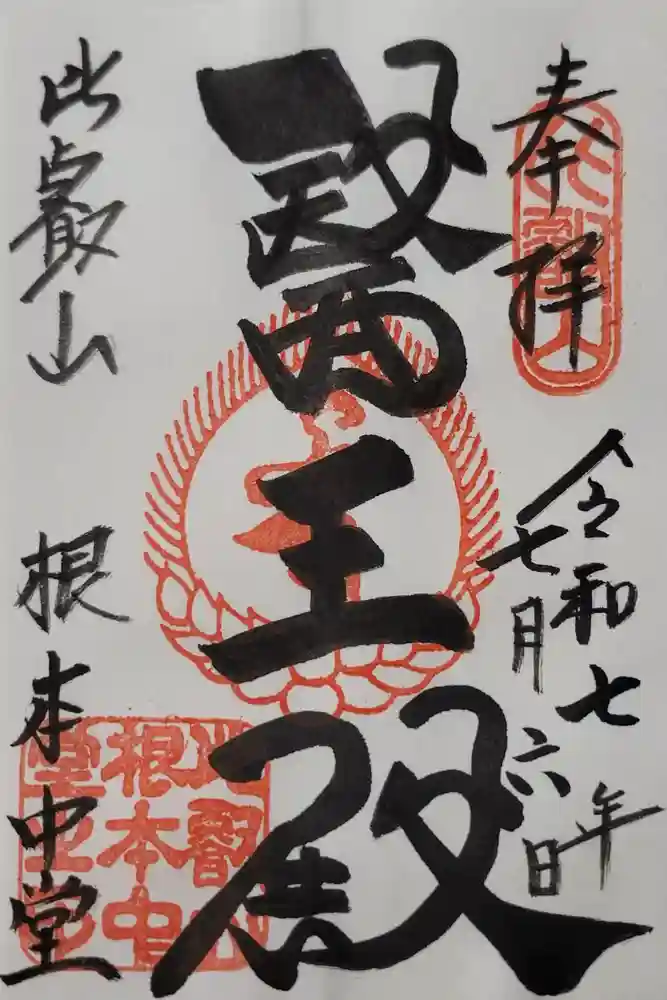 奉拝
令和七年
七月六日
醫王殿
比叡山
根本中堂
比叡山
根本中
堂之印